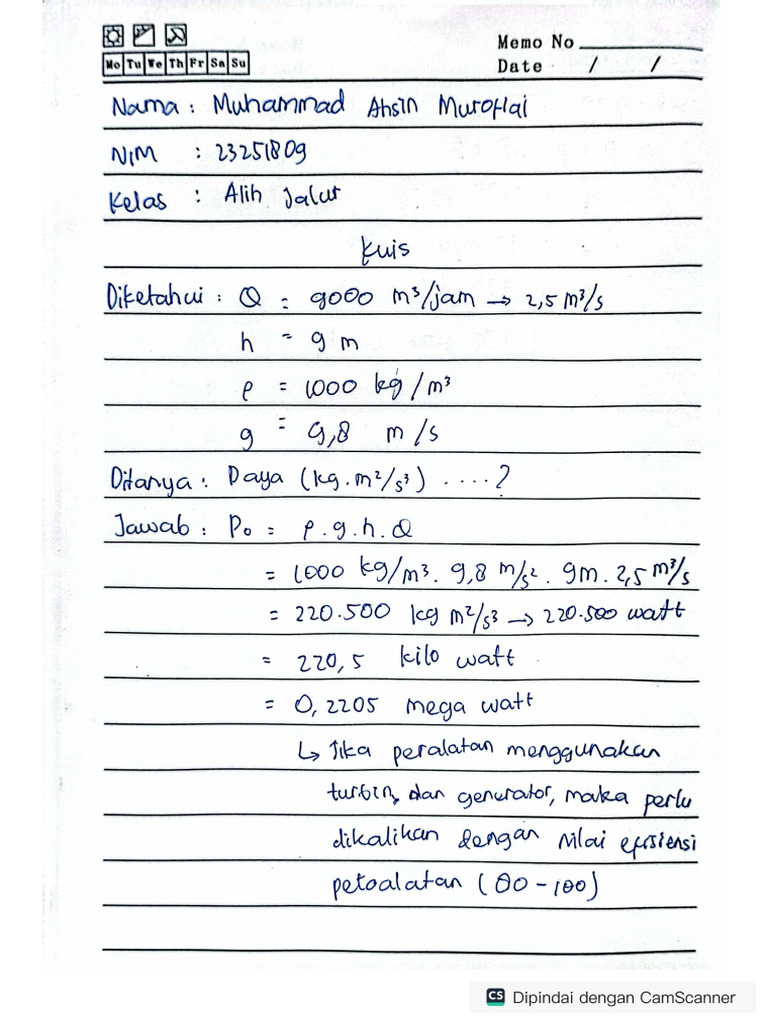 Memo No
Mo Tu We Th Fr Sa Su
Date / /
Nama : Muhammad Ahsin Muroflai
NIM : 23251809
Kelas : Alih Jalur
Kuis
Diketahui : Q = 9000 m³/jam → 2,5 m³/s
h = 9 m
ρ = 1000 kg/m³
g = 9,8 m/s
Ditanya : Daya (kg.m²/s³) ....?
Jawab : Po = ρ.g.h.Q
= 1000 kg/m³. 9,8 m/s². 9m. 2,5 m³/s
= 220.500 kg m²/s³ → 220.500 watt
= 220,5 kilo watt
= 0,2205 mega watt
↳ Jika peralatan menggunakan
turbin, dan generator, maka perlu
dikalikan dengan nilai efisiensi
petoalatan (00-100)
CS Dipindai dengan CamScanner